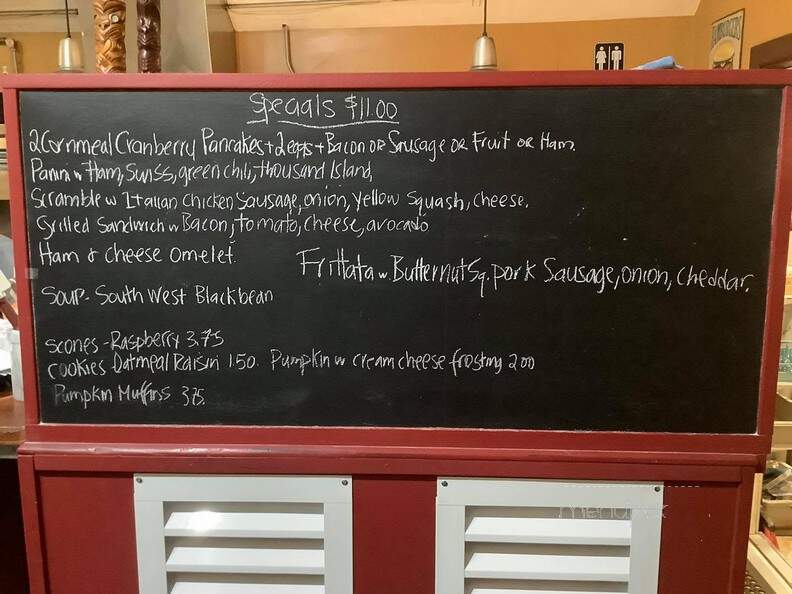 Specials $11.00
2 Cornmeal Cranberry Pancakes + 2 eggs + Bacon OR Sausage OR Fruit OR Ham.
Panini w Ham, Swiss, green chili, thousand Island,
Scramble w Italian Chicken Sausage, onion, yellow squash, cheese.
Grilled Sandwich w Bacon, tomato, cheese, avocado
Ham & cheese omelet
Frittata w. Butternut Sq. pork Sausage, onion, cheddar.
Soup - South West Blackbean
scones - Raspberry 3.75
cookies Oatmeal Raisin 1.50. Pumpkin w cream cheese frosting 2.00
Pumpkin Muffins 3.75.